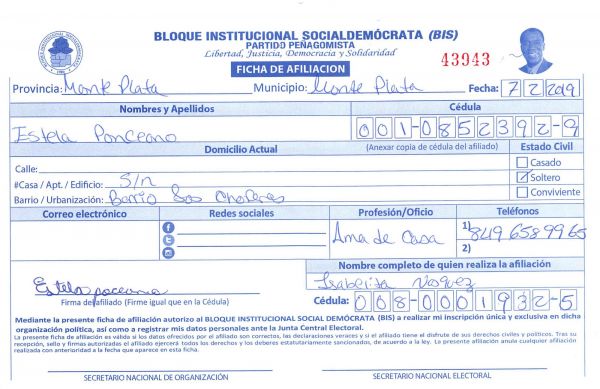 BLOQUE INSTITUCIONAL SOCIALDEMÓCRATA (BIS)
PARTIDO PEÑAGOMISTA
Libertad, Justicia, Democracia y Solidaridad
43943
FICHA DE AFILIACION
Provincia: Monte Plata Municipio: Monte Plata Fecha: 7/2/2019
Nombres y Apellidos Cédula
Estela Ponceano 001-0852392-9
Domicilio Actual (Anexar copia de cédula del afiliado) Estado Civil
Calle: Casado
#Casa / Apt. / Edificio: S/n Soltero
Barrio / Urbanización: Barrio Los Choferes Conviviente
Correo electrónico Redes sociales Profesión/Oficio Teléfonos
Ama de Casa 1) 849 658 9965
2)
Nombre completo de quien realiza la afiliación
Estela poceano Isaberita Vasquez
Firma del afiliado (Firme igual que en la Cédula) Cédula: 008-0001932-5
Mediante la presente ficha de afiliación autorizo al BLOQUE INSTITUCIONAL SOCIAL DEMÓCRATA (BIS) a realizar mi inscripción única y exclusiva en dicha
organización política, así como a registrar mis datos personales ante la Junta Central Electoral.
La presente ficha de afiliación es válida si los datos ofrecidos por el afiliado son correctos, las declaraciones veraces y si el afiliado tiene el disfrute de sus derechos civiles y políticos. Tras su
recepción, sello y firmas autorizadas el afiliado ejercerá todos los derechos y los deberes estatutariamente sancionados, de acuerdo a la ley. La presente afiliación anula cualquier afiliación
realizada con anterioridad a la fecha que aparece en esta ficha.
SECRETARIO NACIONAL DE ORGANIZACIÓN SECRETARIO NACIONAL ELECTORAL